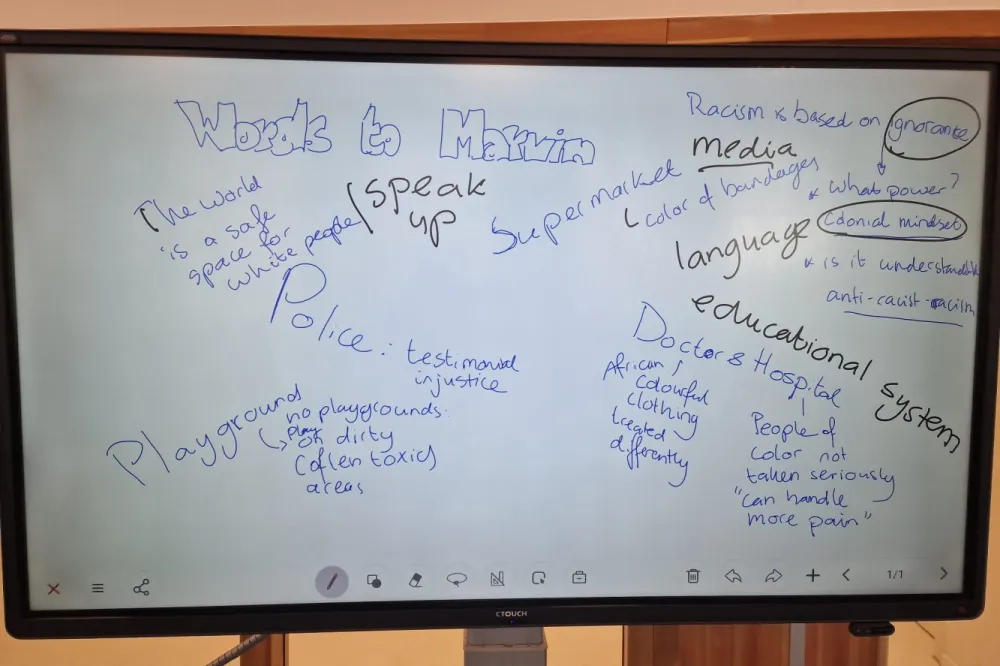 Words to Marvin
The world
is a safe
space for
white people
speak
up
Supermarket
color of bandages
media
Racism is based on ignorante
what power?
Colonial mindset
is it understandable
anti-racist-racism
language
educational system
Police: testimonial
injustice
Playground
no playgrounds
play
on dirty
(often toxic)
areas
Doctor & Hospital
African /
Colourful
clothing
treated
differently
People of
color not
taken seriously
"can handle
more pain"
1/1
CTOUCH